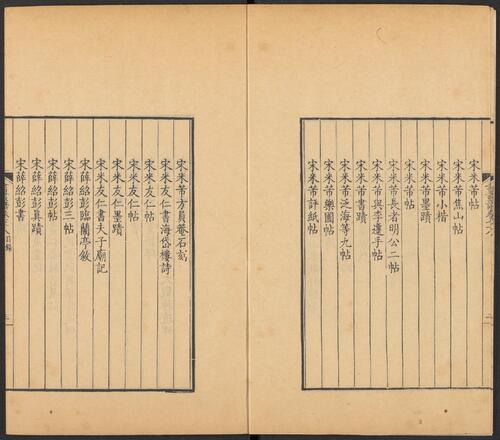 宋米芾帖
宋米芾焦山帖
宋米芾小楷
宋米芾墨蹟
宋米芾帖
宋米芾長者明公二帖
宋米芾與李邊手帖
宋米芾書蹟
宋米芾泛海等九帖
宋米芾樂圃帖
宋米芾評紙帖
宋米芾方員菴石刻
宋米友仁書海岱樓詩
宋米友仁帖
宋米友仁帖
宋米友仁墨蹟
宋米友仁書夫子廟記
宋薛紹彭臨蘭亭敘
宋薛紹彭三帖
宋薛紹彭帖
宋薛紹彭真蹟
宋薛紹彭書